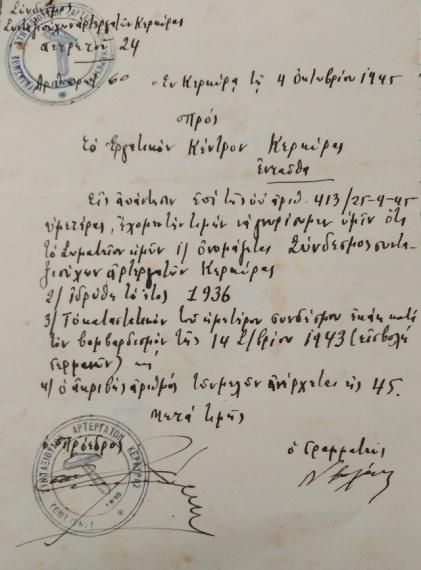 Σύνδεσμος
Συνταξιούχων αρτεργατών Κερκύρας
24
Αριθ. πρωτ. 60 Εν Κερκύρα τη 4 Οκτωβρίου 1945
Προς
Το Εργατικόν Κέντρον Κερκύρας
Ενταύθα
Εις απάντησιν επί της υπ' αριθ. 413/25-9-45
υμετέρας, έχομεν την τιμήν να γνωρίσωμεν υμίν ότι
το Σωματείον ημών 1/ ονομάζεται Σύνδεσμος συντα-
ξιούχων αρτεργατών Κερκύρας
2/ ιδρύθη το έτος 1936
3/ Το καταστατικόν του ημετέρου συνδέσμου εκάη κατά
τον βομβαρδισμόν της 14 7/βρίου 1943 (εισβολή
γερμανών)
4/ ο ακριβής αριθμός των μελών ανέρχεται εις 45.
Μετά τιμής
ο Πρόεδρος ο Γραμματεύς
ΣΥΝΤΑΞΙΟΥΧΩΝ ΑΡΤΕΡΓΑΤΩΝ ΚΕΡΚΥΡΑΣ